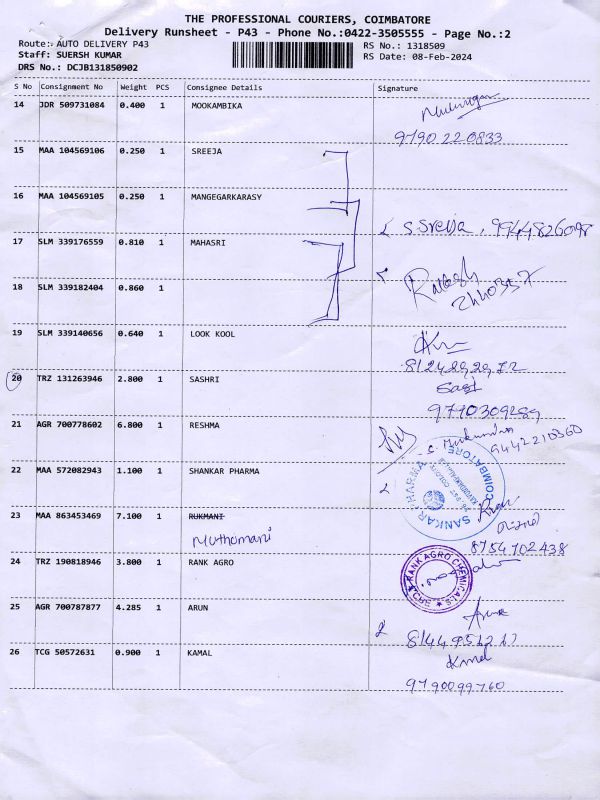 THE PROFESSIONAL COURIERS, COIMBATORE
Delivery Runsheet - P43 - Phone No.:0422-3505555 - Page No.:2
Route: AUTO DELIVERY P43 RS No.: 1318509
Staff: SUERSH KUMAR RS Date: 08-Feb-2024
DRS No.: DCJB131850902
S No Consignment No Weight PCS Consignee Details Signature
14 JDR 509731084 0.400 1 MOOKAMBIKA
9790220833
15 MAA 104569106 0.250 1 SREEJA
16 MAA 104569105 0.250 1 MANGEGARKARASY
S Sreeja, 9944826098
17 SLM 339176559 0.810 1 MAHASRI
18 SLM 339182404 0.860 1
19 SLM 339140656 0.640 1 LOOK KOOL
20 TRZ 131263946 2.800 1 SASHRI
9790309289
21 AGR 700778602 6.800 1 RESHMA
9442210360
22 MAA 572082943 1.100 1 SHANKAR PHARMA
SANKAR PHARMA
COIMBATORE
23 MAA 863453469 7.100 1 RUKMANI
Muthumani
8754702438
24 TRZ 190818946 3.800 1 RANK AGRO
RANK AGRO CHEMICALS
25 AGR 700787877 4.285 1 ARUN
Arun
26 TCG 50572631 0.900 1 KAMAL
Kamal
9790099760